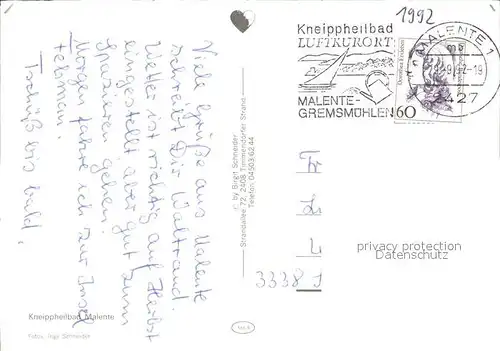 1992
Kneippheilbad
LUFTKURORT
MALENTE-
GREMSMÜHLEN
MALENTE 1
2427
60
Viele Grüße aus Malente
schreibt Dir Waltraud.
Wetter ist richtig auf Herbst
eingestellt aber gut zum
Spazieren gehen.
Morgen fahre ich zur Insel
Fehmarn.
Tschüß bis bald.
© by Birgit Schneider
Strandallee 72, 2408 Timmendorfer Strand
Telefon 04503/6244
F
L
L
3338 J
privacy protection
Datenschutz
Kneippheilbad Malente
Fotos: Ingo Schneider